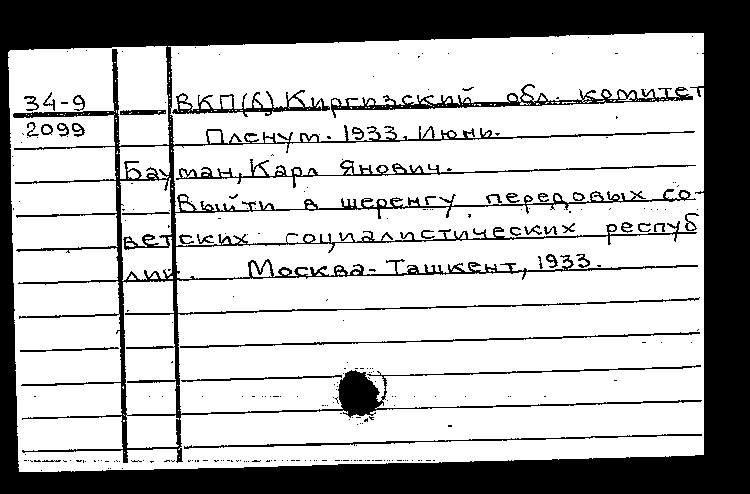 34-9 ВКП(б) Киргизский обл. комитет
2099 Пленум. 1933. Июнь.
Бауман, Карл Янович.
Выйти в шеренгу передовых со-
ветских социалистических респуб
лик. Москва-Ташкент, 1933.